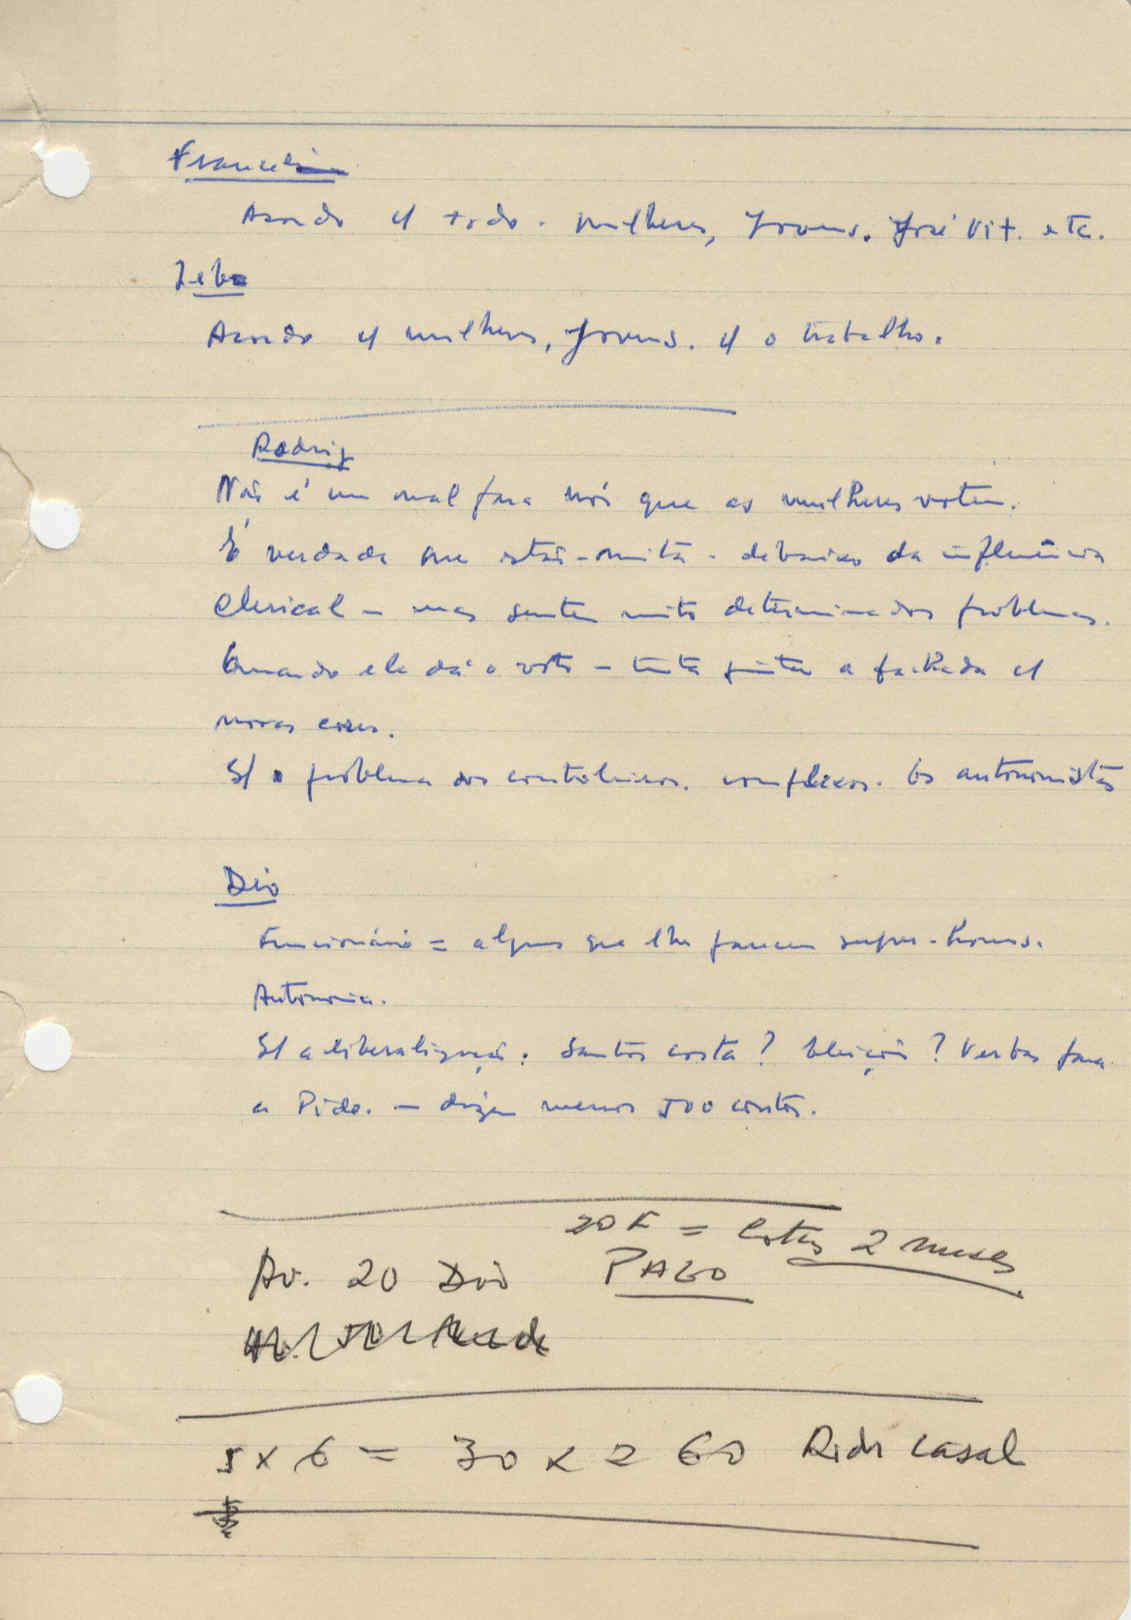 Acordo c/ todo. mulheres, Jovens. José Vit. etc.
Zeb
Acordo c/ mulheres, Jovens. c/ o trabalho.
Rodrig
Não é um mal para nós que as mulheres votem.
É verdade que estão debaixo da influência
clerical – mas sentem muito determinados problemas.
Quando ele dá o voto – tenta pintar a fachada c/
novas cores.
S/ o problema dos complexos. Os autonomistas
Dio
Funcionário = alguns que lhe parecem super-homens.
Autonomia.
S/ a liberalização. Santos Costa? Eleições? Verbas para
a Pide. – dizem menos 500 contos.
20 F = Cotas 2 meses
Av. 20 Dio PAGO
5 x 6 = 30 x 2 60 Rid casal